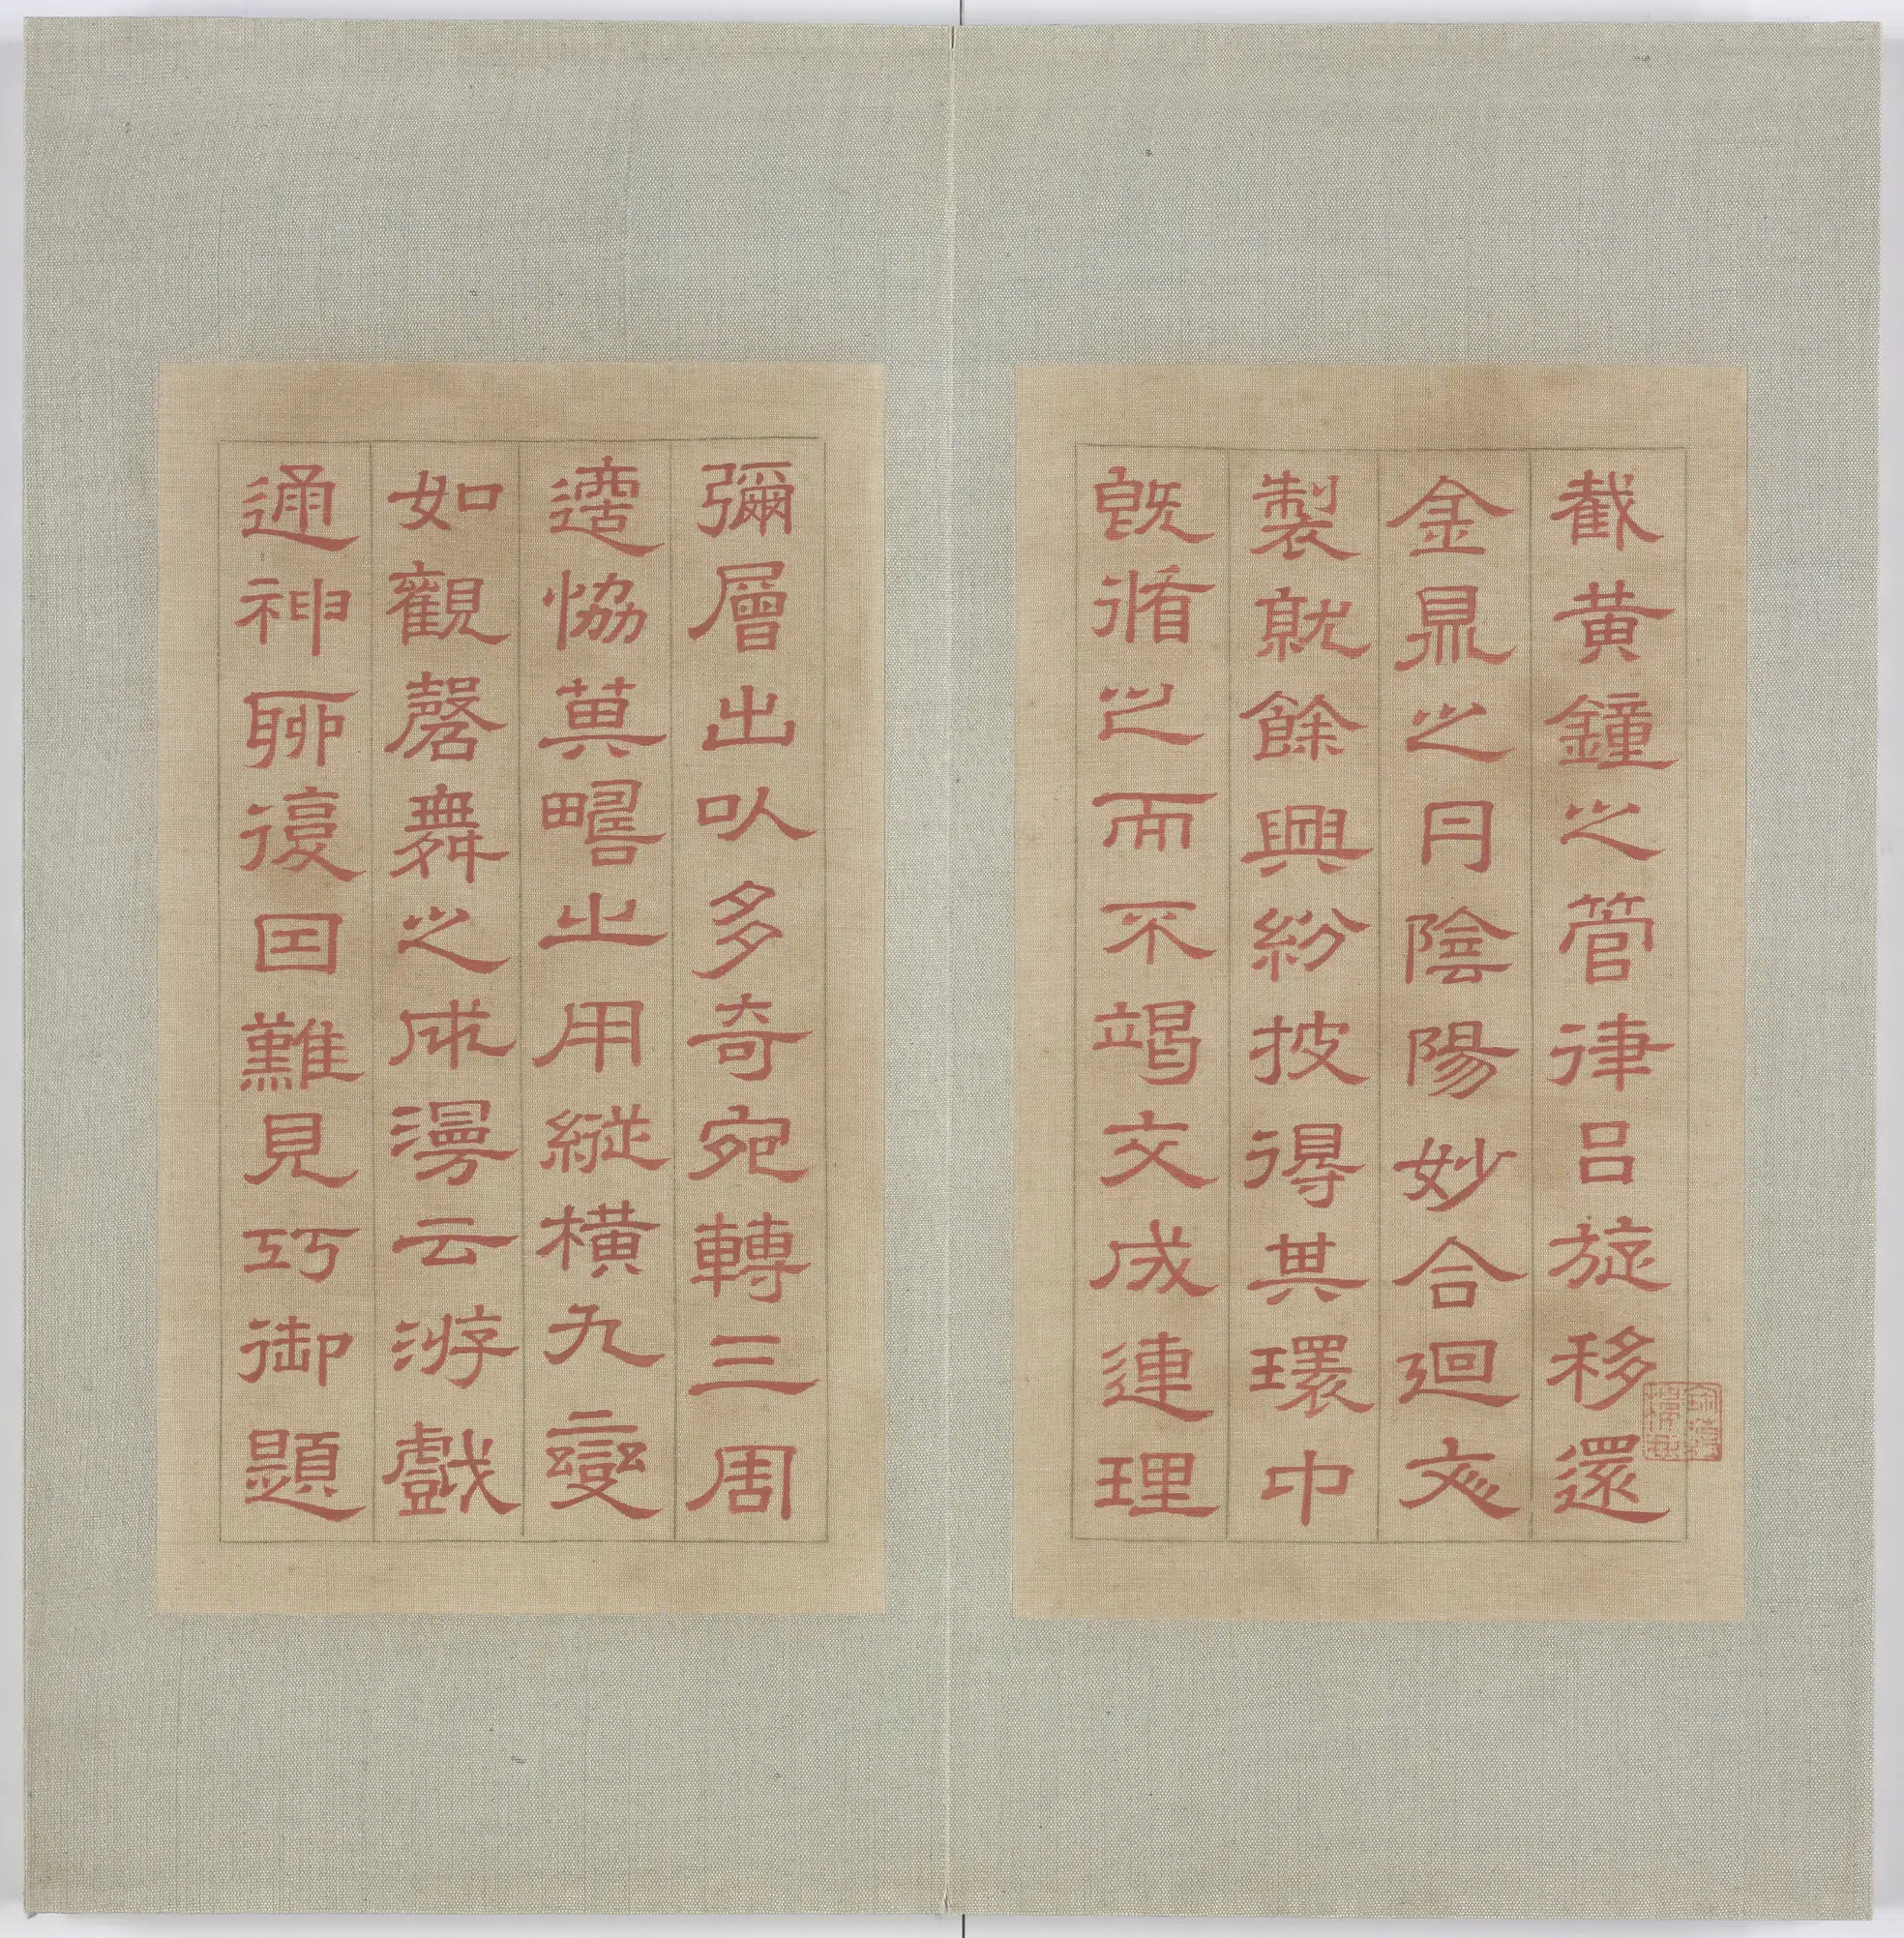 截黃鐘之管律呂旋移還
金鼎之丹陰陽妙合迴文
製就餘興紛披得其環中
既循之而不竭文成連理
彌層出以多奇宛轉三周
適協萁疇之用縱橫九變
如觀磬舞之成漫云游戲
通神聊復因難見巧御題